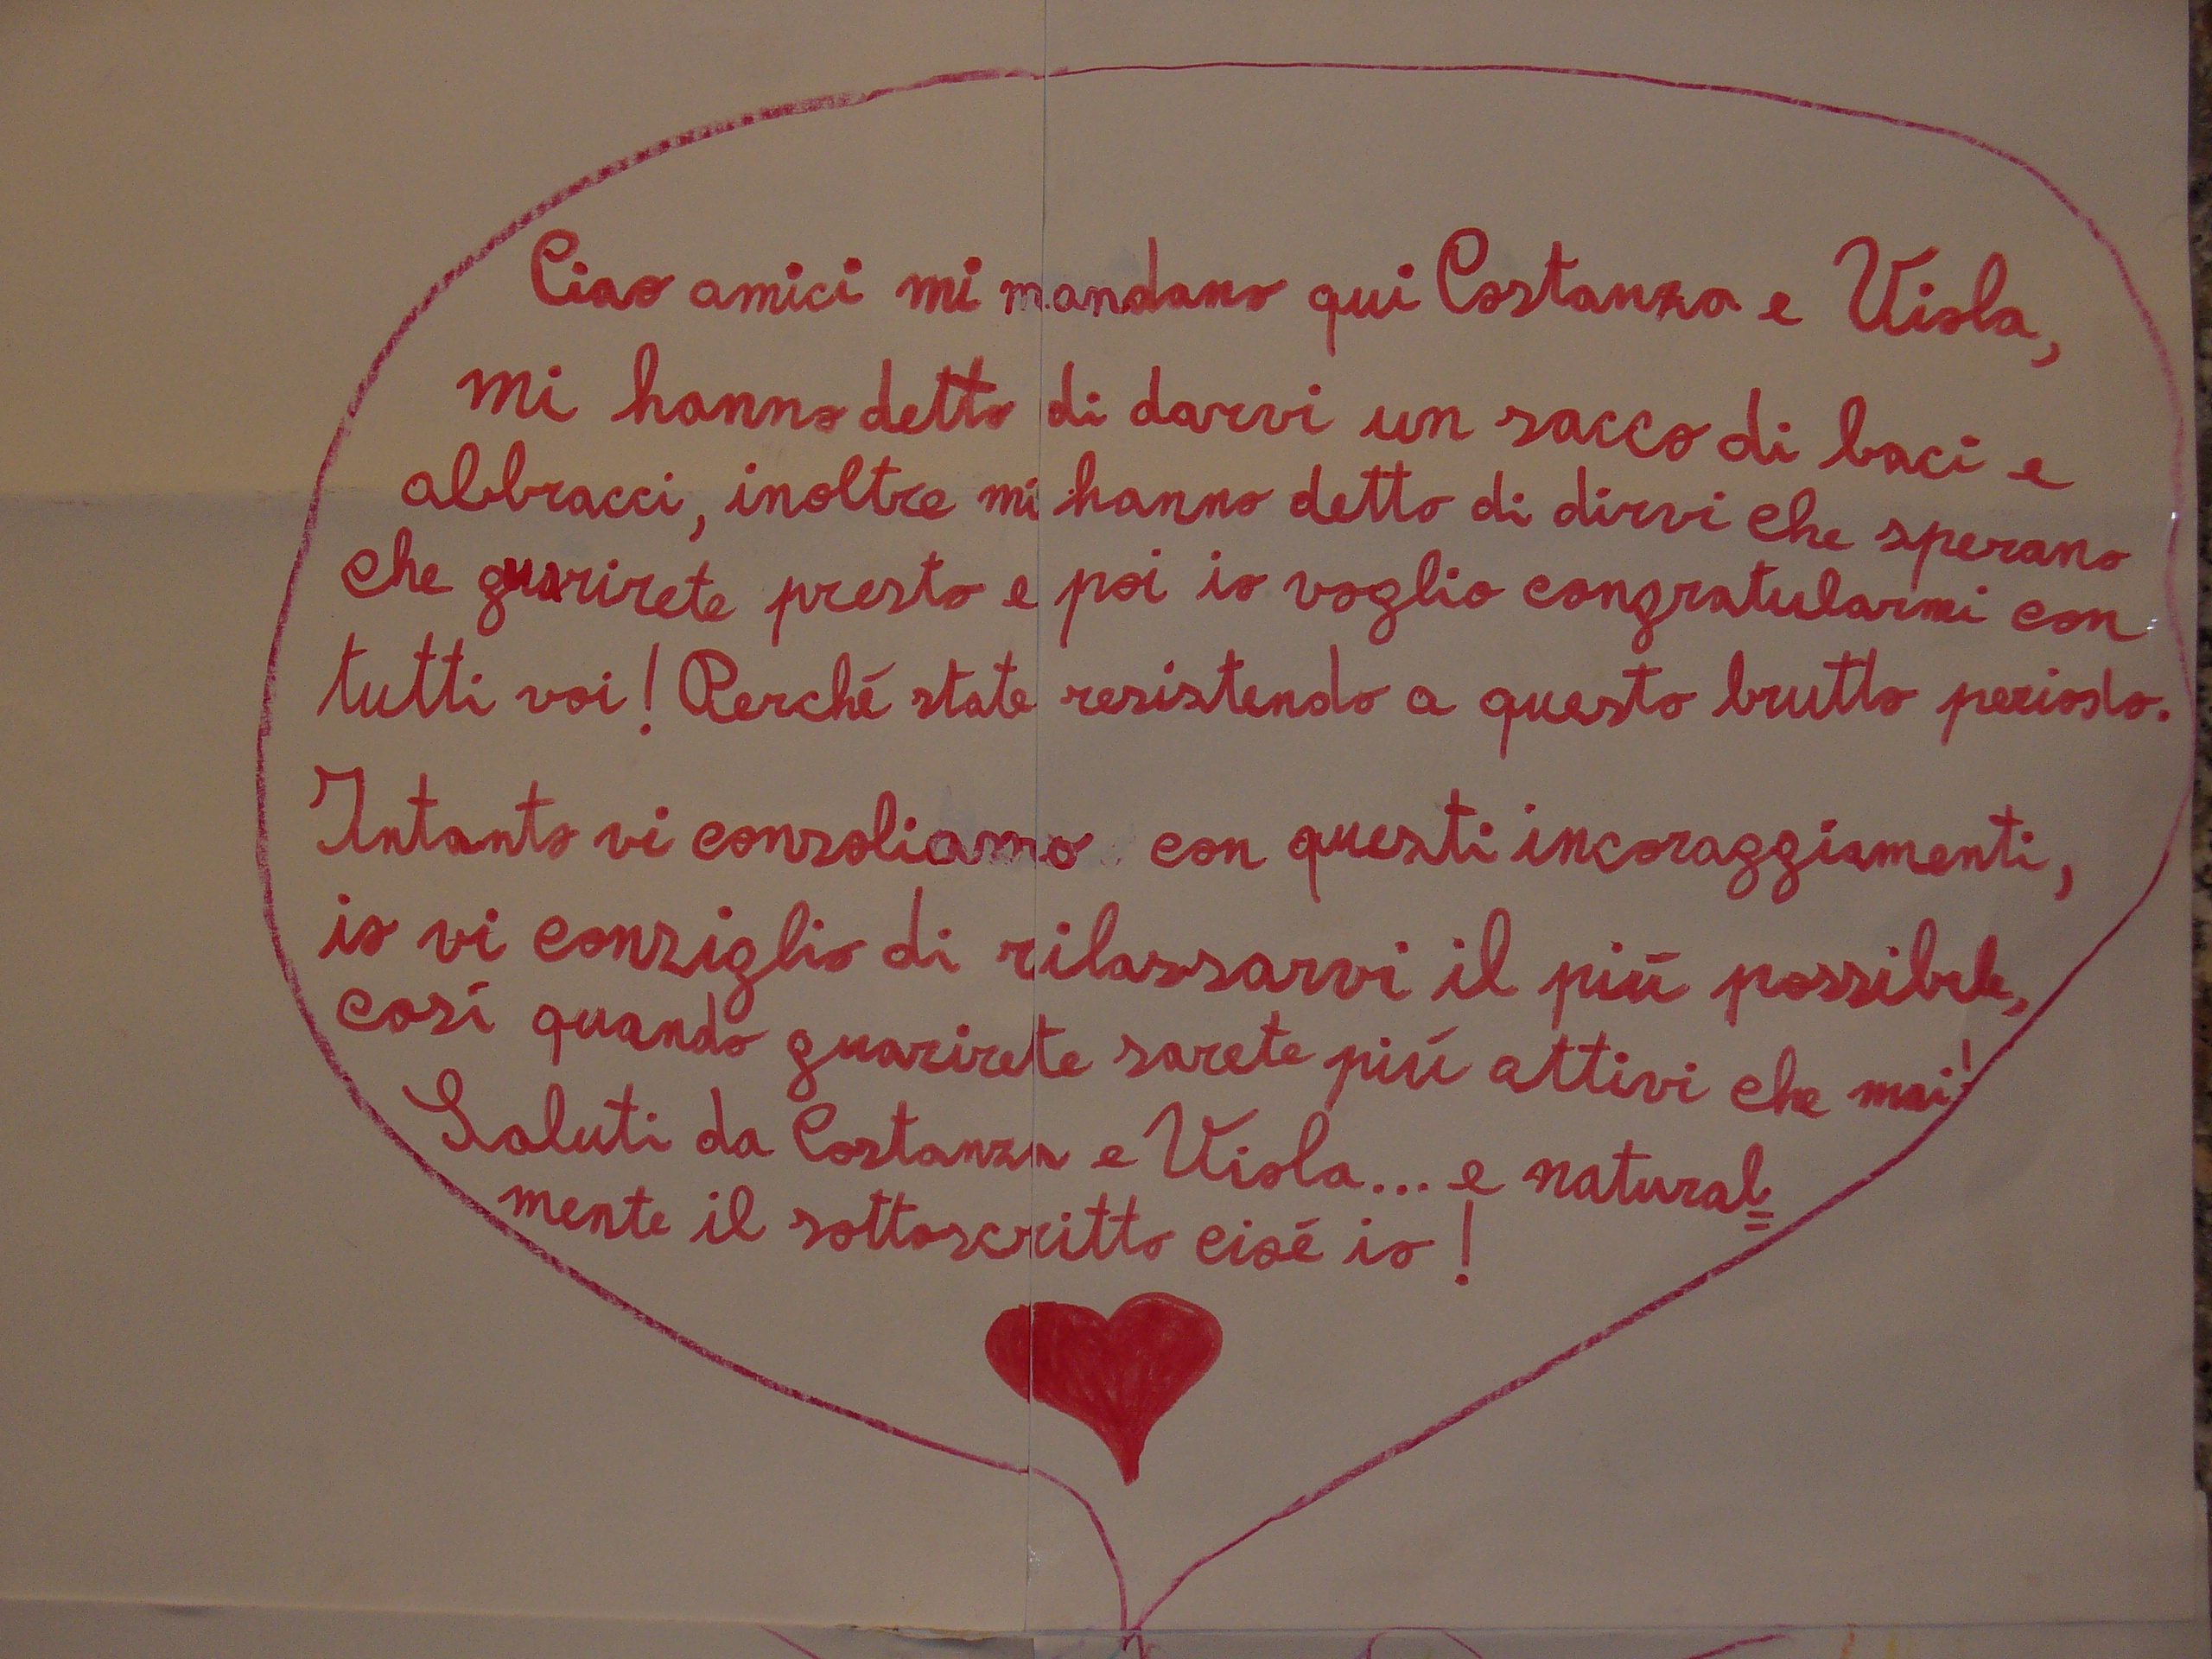 Ciao amici mi mandano qui Costanza e Viola,
mi hanno detto di darvi un sacco di baci e
abbracci, inoltre mi hanno detto di dirvi che sperano
che guarirete presto e poi io voglio congratularmi con
tutti voi! Perché state resistendo a questo brutto periodo.
Intanto vi consoliamo con questi incoraggiamenti,
io vi consiglio di rilassarvi il piú possibile,
cosí quando guarirete sarete piú attivi che mai!
Saluti da Costanza e Viola... e natural=
mente il sottoscritto cioé io!